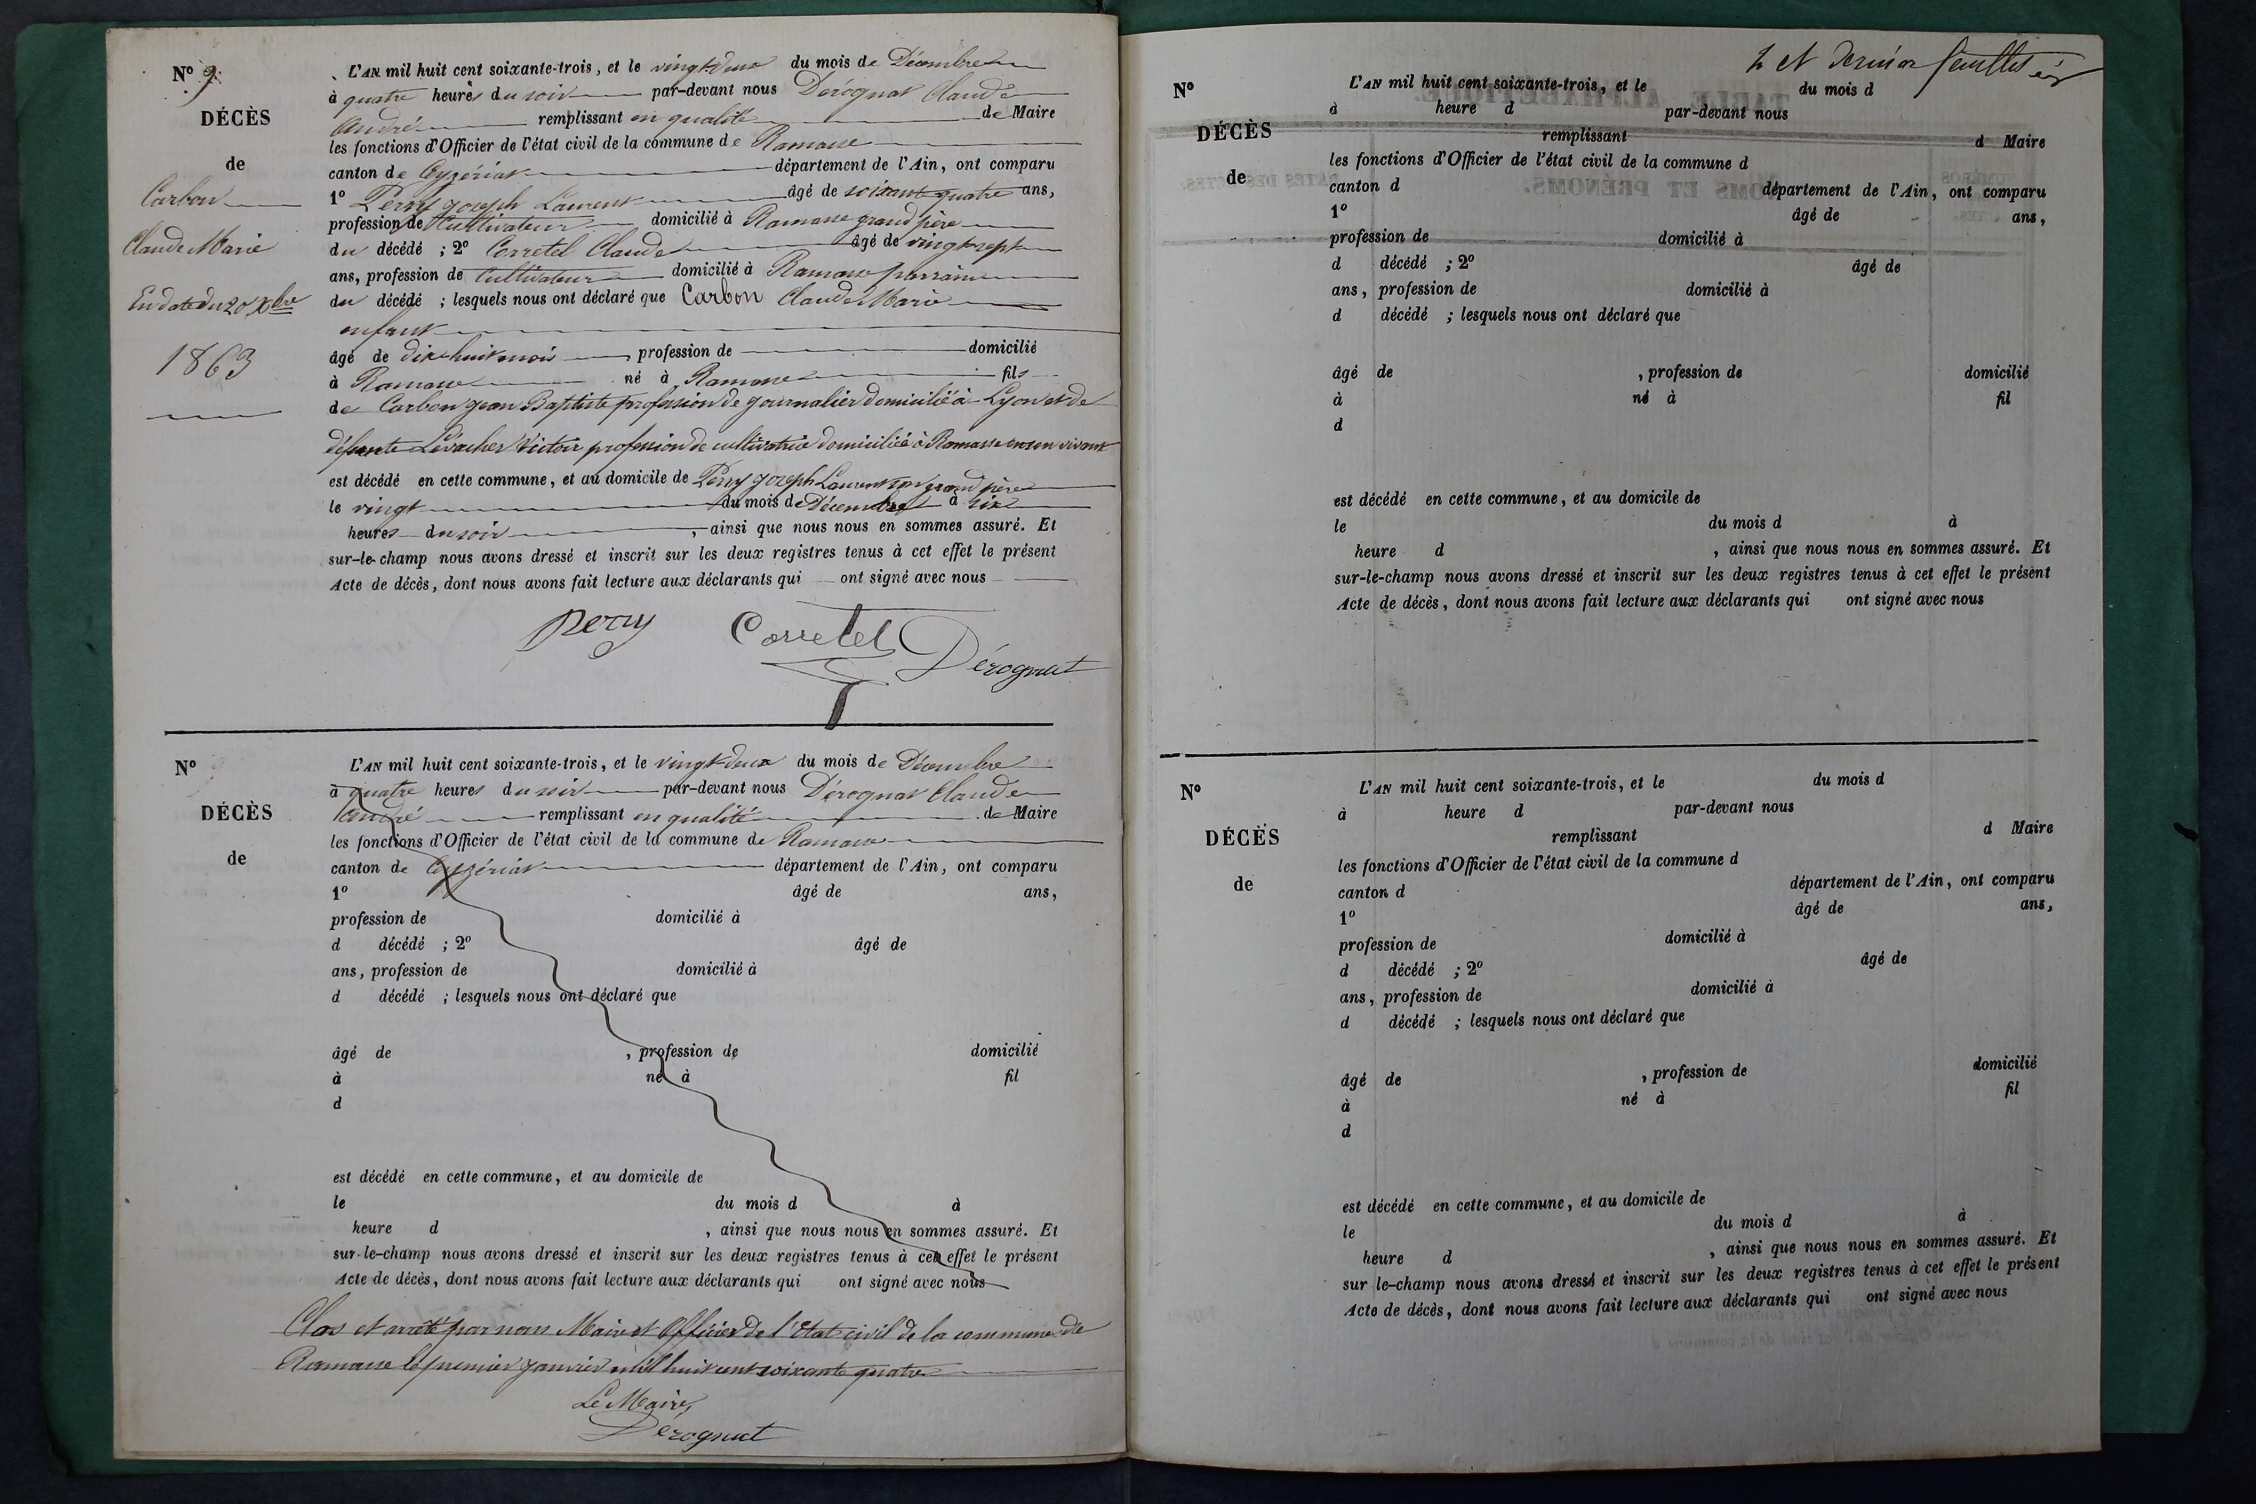 Nº 9
DÉCÈS
de
Carbon
Claude Marie
En date du 20 Xbre
1863
L'AN mil huit cent soixante-trois, et le vingt deux du mois de Décembre
à quatre heures du soir par-devant nous Dérognat Claude
André remplissant en qualité de Maire
les fonctions d'Officier de l'état civil de la commune de Ramasse
canton de Ceyzériat département de l'Ain, ont comparu
1º Perry Joseph Laurent âgé de soixante quatre ans,
profession de Cultivateur domicilié à Ramasse grand père
du décédé ; 2º Corretel Claude âgé de vingt sept
ans, profession de Cultivateur domicilié à Ramasse parrain
du décédé ; lesquels nous ont déclaré que Carbon Claude Marie
enfant
âgé de dix huit mois, profession de domicilié
à Ramasse né à Ramasse fils
de Carbon Jean Baptiste profession de journalier domicilié à Lyon et de
défunte Levacher Victoire profession de cultivatrice domiciliée à Ramasse en son vivant
est décédé en cette commune, et au domicile de Perry Joseph Laurent son grand père
le vingt du mois de Décembre à six
heures du soir, ainsi que nous nous en sommes assuré. Et
sur-le-champ nous avons dressé et inscrit sur les deux registres tenus à cet effet le présent
Acte de décès, dont nous avons fait lecture aux déclarants qui ont signé avec nous
Perry Corretel Dérognat
Nº
DÉCÈS
de
L'AN mil huit cent soixante-trois, et le vingt deux du mois de Décembre
à quatre heures du soir par-devant nous Dérognat Claude
André remplissant en qualité de Maire
les fonctions d'Officier de l'état civil de la commune de Ramasse
canton de Ceyzériat département de l'Ain, ont comparu
1º âgé de ans,
profession de domicilié à
d décédé ; 2º âgé de
ans, profession de domicilié à
d décédé ; lesquels nous ont déclaré que
âgé de , profession de domicilié
à né à fil
d
est décédé en cette commune, et au domicile de
le du mois d à
heure d , ainsi que nous nous en sommes assuré. Et
sur-le-champ nous avons dressé et inscrit sur les deux registres tenus à cet effet le présent
Acte de décès, dont nous avons fait lecture aux déclarants qui ont signé avec nous
Clos et arrêté par nous Maire et Officier de l'état civil de la commune de
Ramasse le premier janvier mil huit cent soixante quatre
Le Maire,
Dérognat
et dernier feuillet
Nº
DÉCÈS
de
L'AN mil huit cent soixante-trois, et le du mois d
à heure d par-devant nous
remplissant d Maire
les fonctions d'Officier de l'état civil de la commune d
canton d département de l'Ain, ont comparu
1º âgé de ans,
profession de domicilié à
d décédé ; 2º âgé de
ans, profession de domicilié à
d décédé ; lesquels nous ont déclaré que
âgé de , profession de domicilié
à né à fil
d
est décédé en cette commune, et au domicile de
le du mois d à
heure d , ainsi que nous nous en sommes assuré. Et
sur-le-champ nous avons dressé et inscrit sur les deux registres tenus à cet effet le présent
Acte de décès, dont nous avons fait lecture aux déclarants qui ont signé avec nous
Nº
DÉCÈS
de
L'AN mil huit cent soixante-trois, et le du mois d
à heure d par-devant nous
remplissant d Maire
les fonctions d'Officier de l'état civil de la commune d
canton d département de l'Ain, ont comparu
1º âgé de ans,
profession de domicilié à
d décédé ; 2º âgé de
ans, profession de domicilié à
d décédé ; lesquels nous ont déclaré que
âgé de , profession de domicilié
à né à fil
d
est décédé en cette commune, et au domicile de
le du mois d à
heure d , ainsi que nous nous en sommes assuré. Et
sur le-champ nous avons dressé et inscrit sur les deux registres tenus à cet effet le présent
Acte de décès, dont nous avons fait lecture aux déclarants qui ont signé avec nous